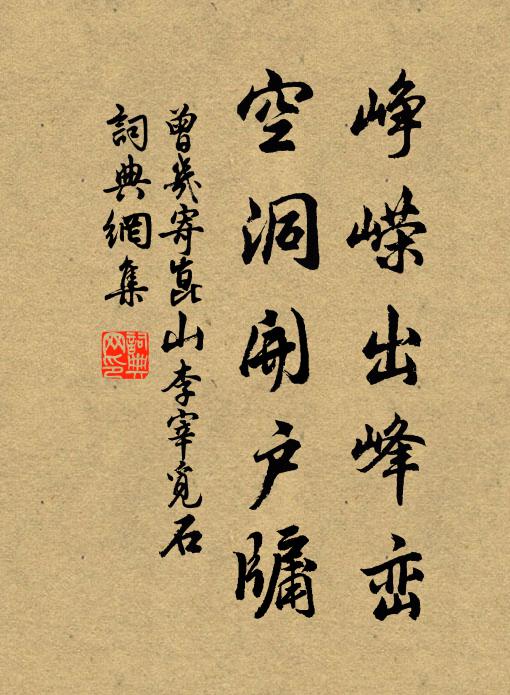 峥嵘出峰峦
空洞開户牖
曾幾寄崑山李宰覓石
詞典網集
詞典网印